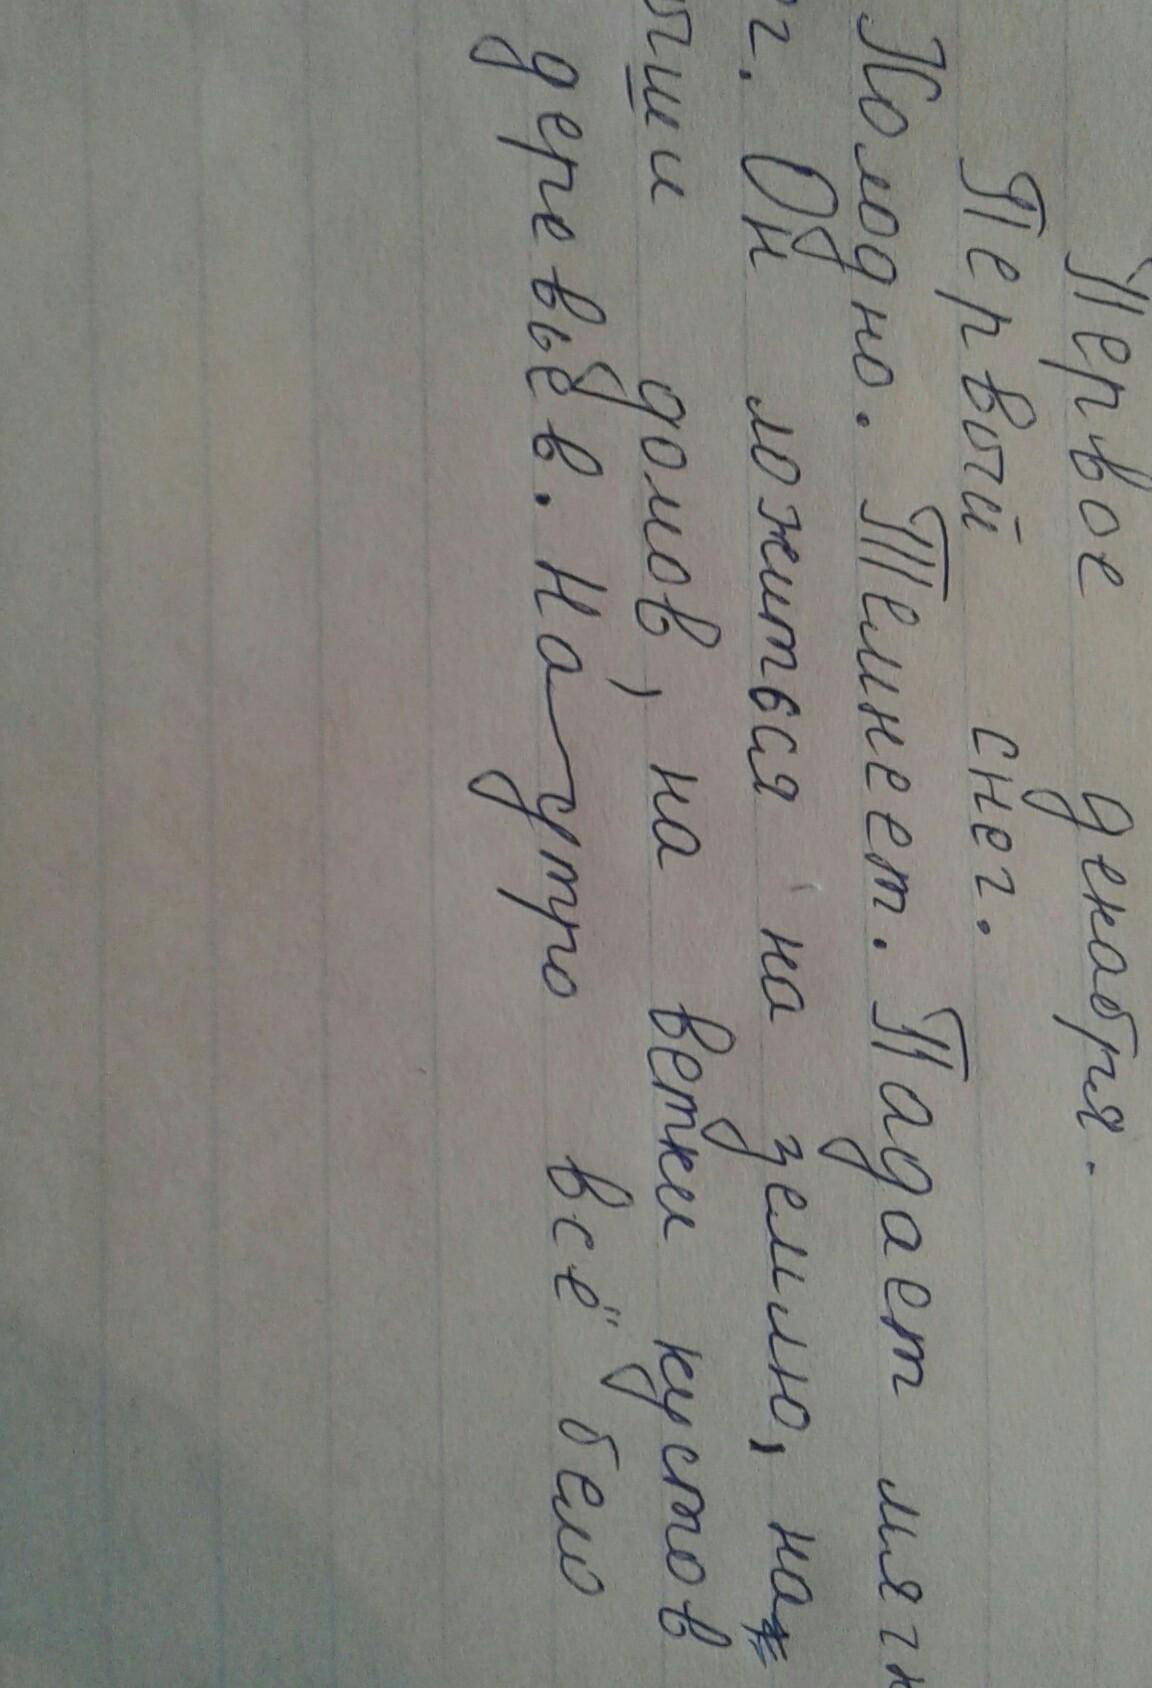 Первое декабря.
Первый снег.
Холодно. Темнеет. Падает мягк
ег. Он ложиться на землю, на
ыши домов, на ветки кустов
деревьев. На утро всё бело